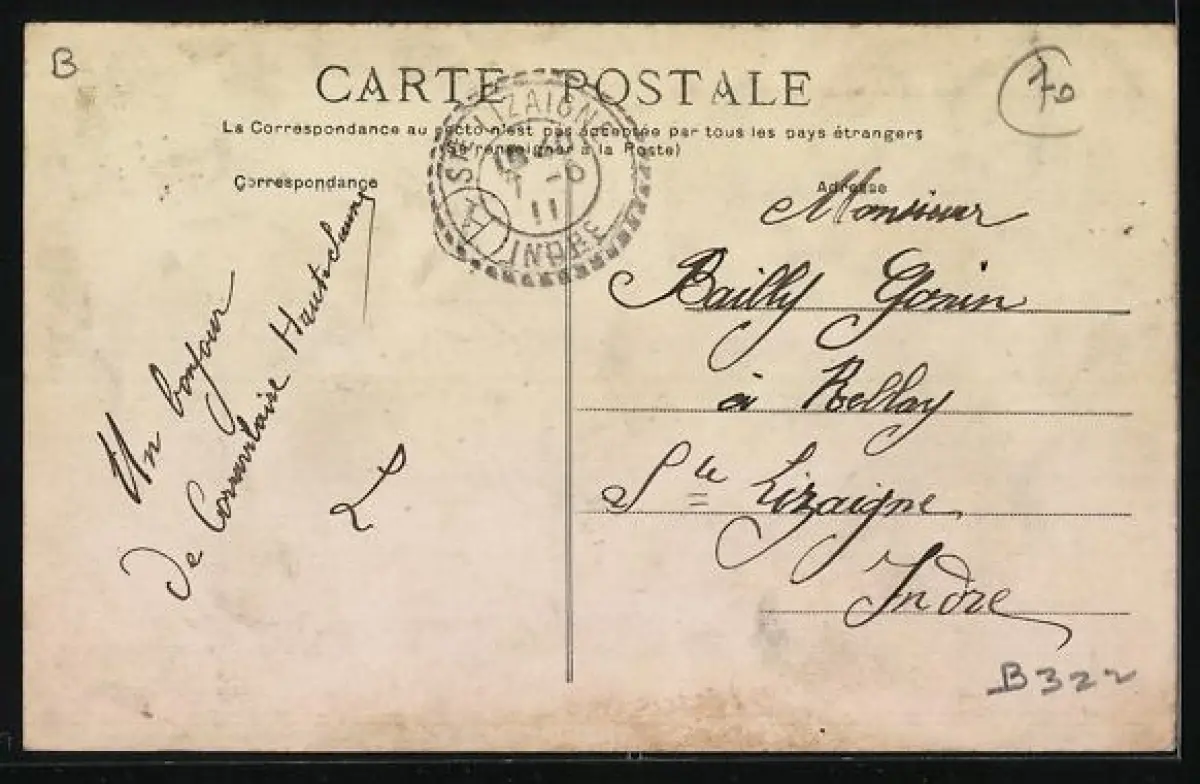 B
70
CARTE POSTALE
La Correspondance au recto n'est pas acceptée par tous les pays étrangers
(Se renseigner à la Poste)
Correspondance
Adresse
STE LIZAIGNE
11
INDRE
Un bonjour
De
Monsieur
Bailly Gonin
à Rellay
Ste Lizaigne
Indre
B322